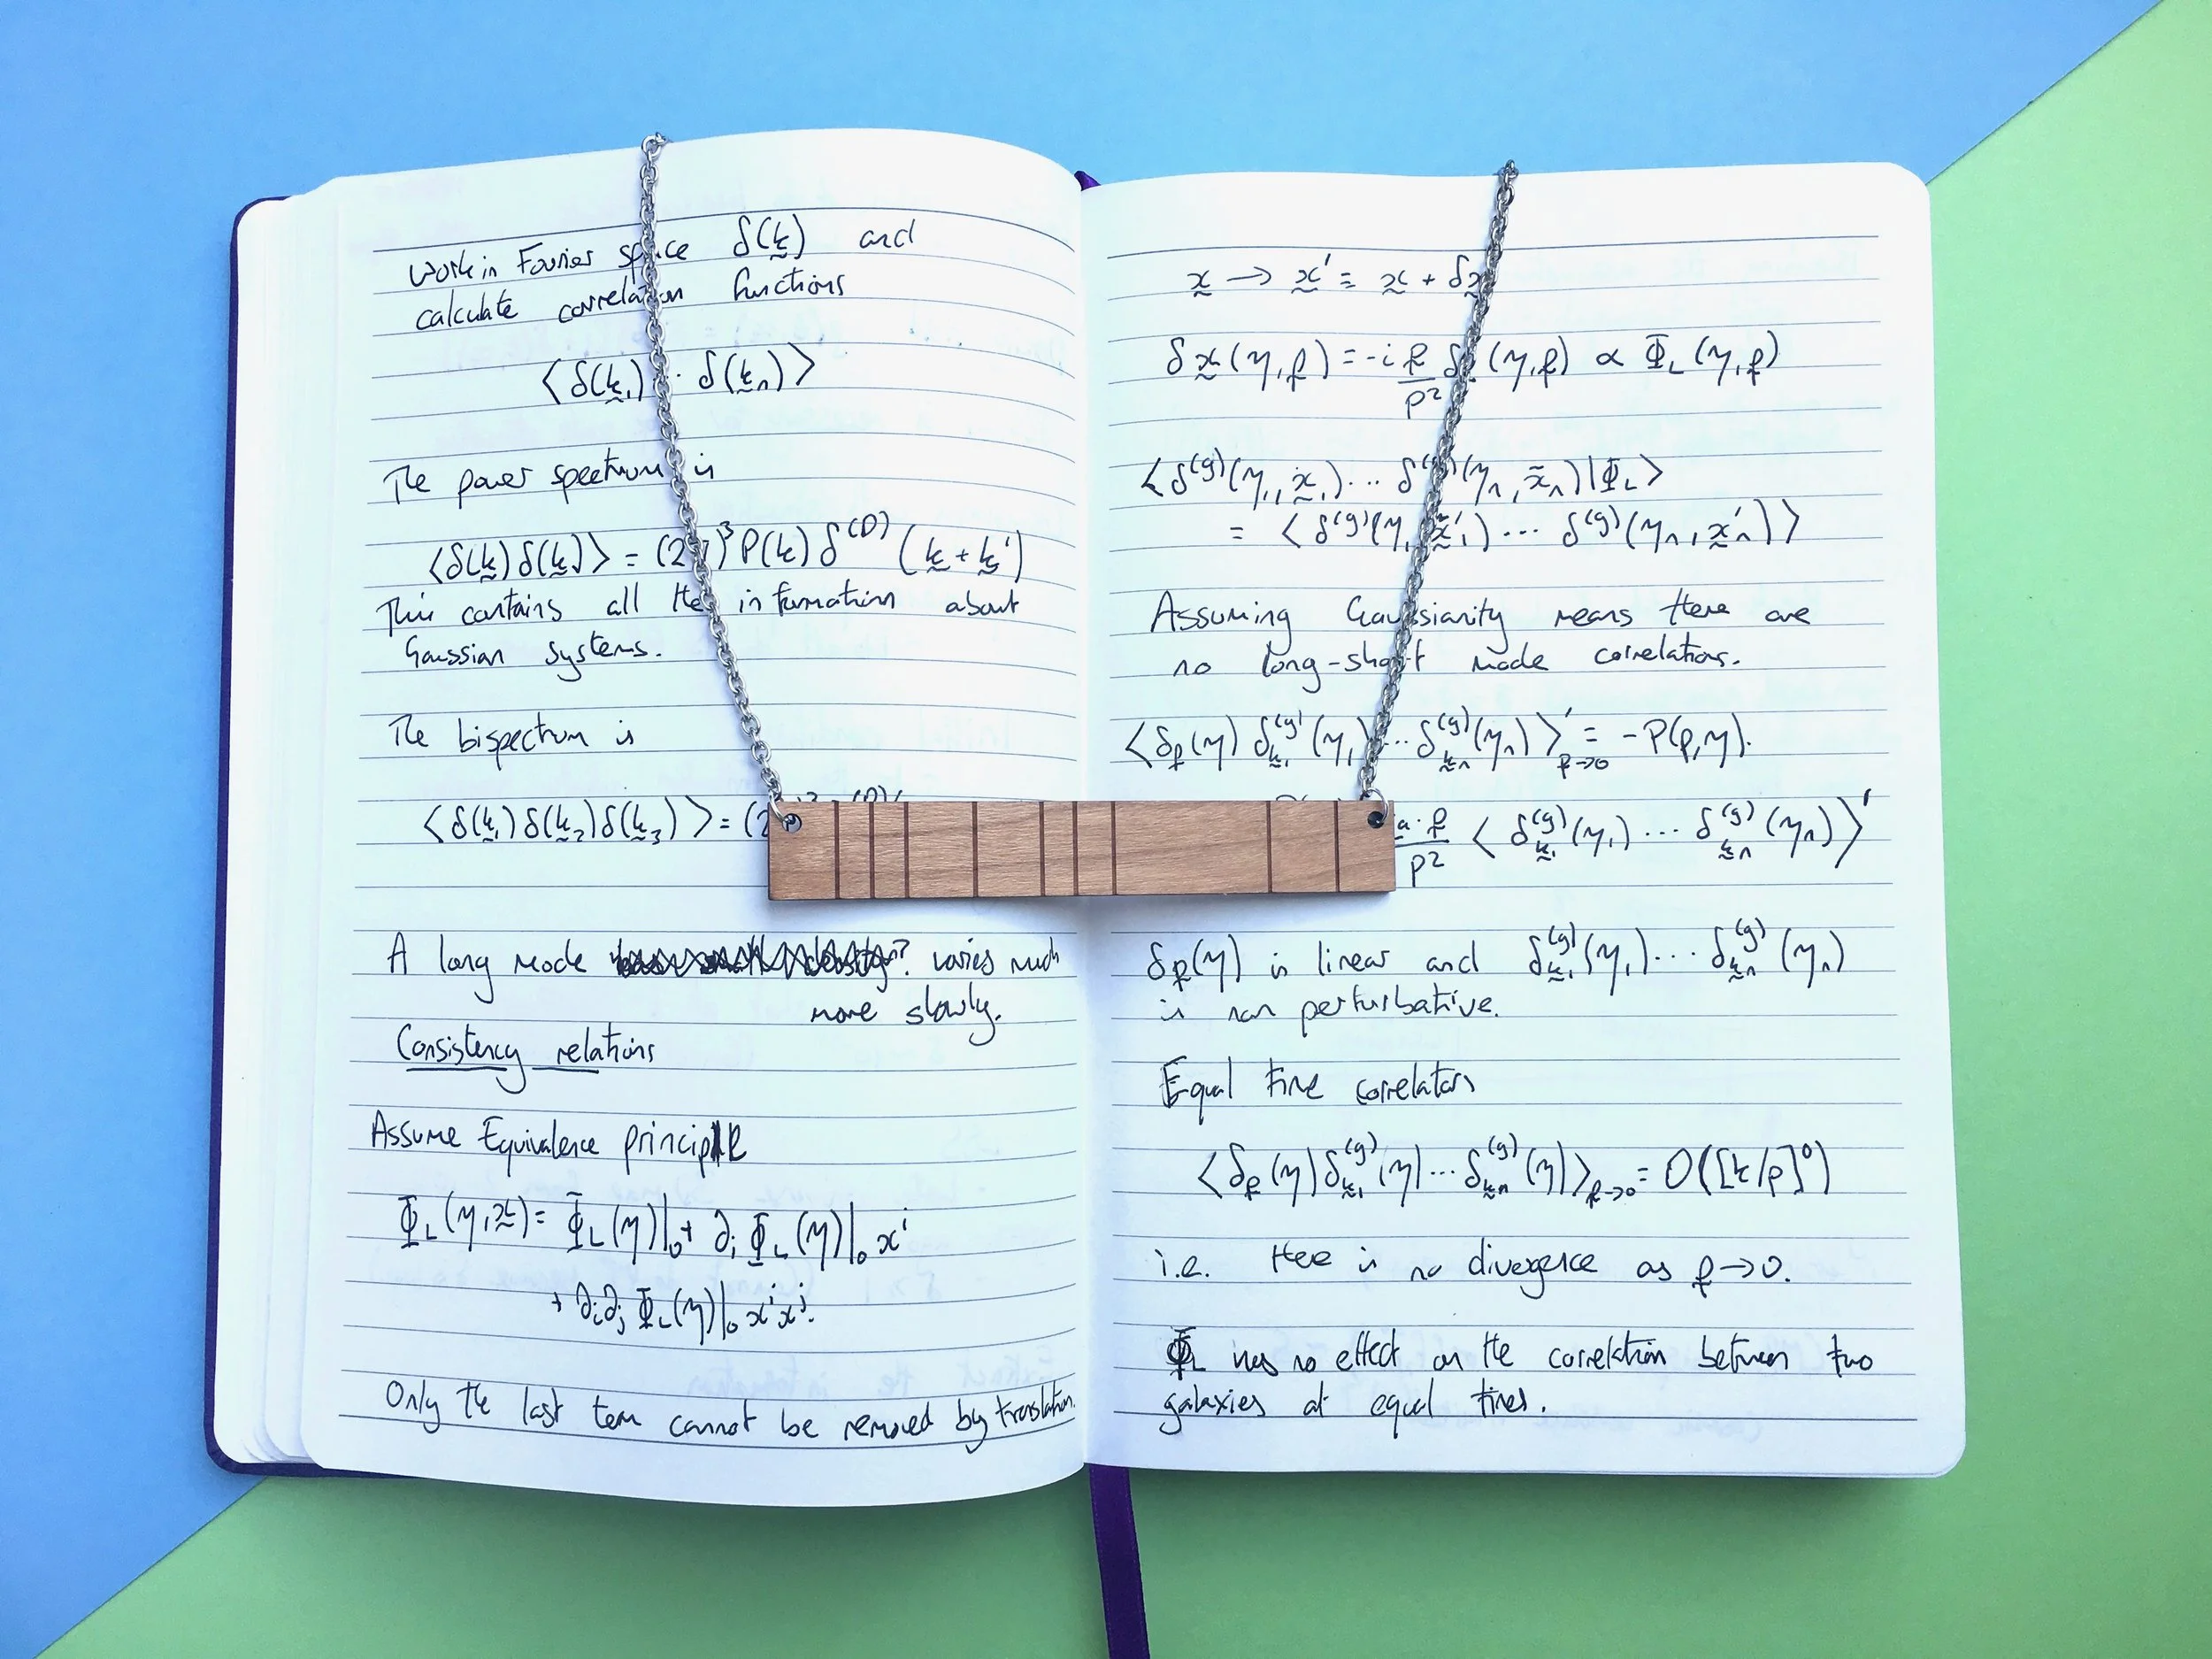 Work in Fourier space δ(k) and
calculate correlation functions
⟨δ(k₁) · δ(kₙ)⟩
The power spectrum is
⟨δ(k)δ(k)⟩ = (2π)³P(k)δ⁽ᴰ⁾(k+k')
This contains all the information about
Gaussian systems.
The bispectrum is
⟨δ(k₁)δ(k₂)δ(k₃)⟩ = (2
A long mode varies much
more slowly.
Consistency relations
Assume Equivalence principle
Φ_L(η,x) = Φ_L(η)|₀ + ∂ᵢΦ_L(η)|₀ xⁱ
+ ∂ᵢ∂ⱼΦ_L(η)|₀ xⁱxʲ.
Only the last term cannot be removed by translation.
x → x' = x + δx
δx(η,p) = -i p/p² δ (η,p) ∝ Φ_L(η,p)
⟨δ⁽ᵍ⁾(η₁,x₁)... δ⁽ᵍ⁾(ηₙ,xₙ)|Φ_L⟩
= ⟨δ⁽ᵍ⁾(η₁,x'₁)... δ⁽ᵍ⁾(ηₙ,x'ₙ)⟩
Assuming Gaussianity means there are
no long-short mode correlations.
⟨δ_p(η) δ_k₁⁽ᵍ⁾(η₁)...δ_kₙ⁽ᵍ⁾(ηₙ)⟩'_p→0 = -P(p,η).
·p/p² ⟨δ_k₁⁽ᵍ⁾(η₁)... δ_kₙ⁽ᵍ⁾(ηₙ)⟩'
δ_p(η) is linear and δ_k₁⁽ᵍ⁾(η₁)...δ_kₙ⁽ᵍ⁾(ηₙ)
is non perturbative.
Equal time correlators
⟨δ_p(η)δ_k₁⁽ᵍ⁾(η)...δ_kₙ⁽ᵍ⁾(η)⟩_p→0 = O([k/p]⁰)
i.e. there is no divergence as p→0.
Φ_L has no effect on the correlation between two
galaxies at equal times.